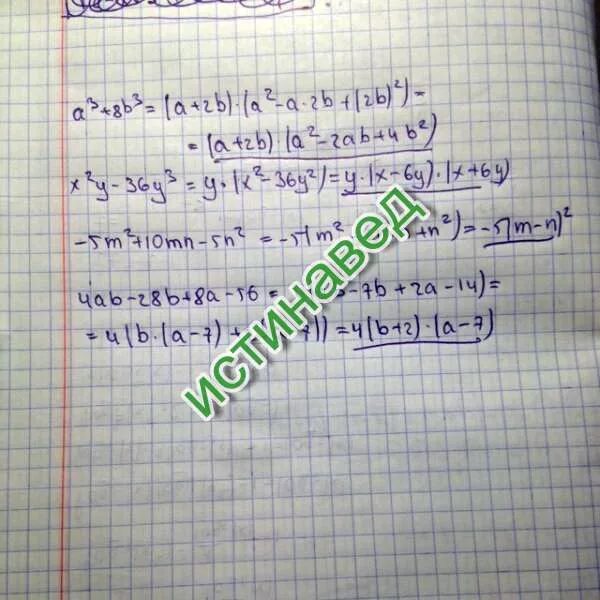 a³+8b³=(a+2b)·(a²-a·2b+(2b)²)=
=(a+2b)(a²-2ab+4b²)
x²y-36y³=y·(x²-36y²)=y·(x-6y)·(x+6y)
-5m²+10mn-5n²=-5(m² +n²)=-5(m-n)²
4ab-28b+8a-56= -7b+2a-14)=
=4(b·(a-7)+ 7))=4(b+2)·(a-7)
истинавед